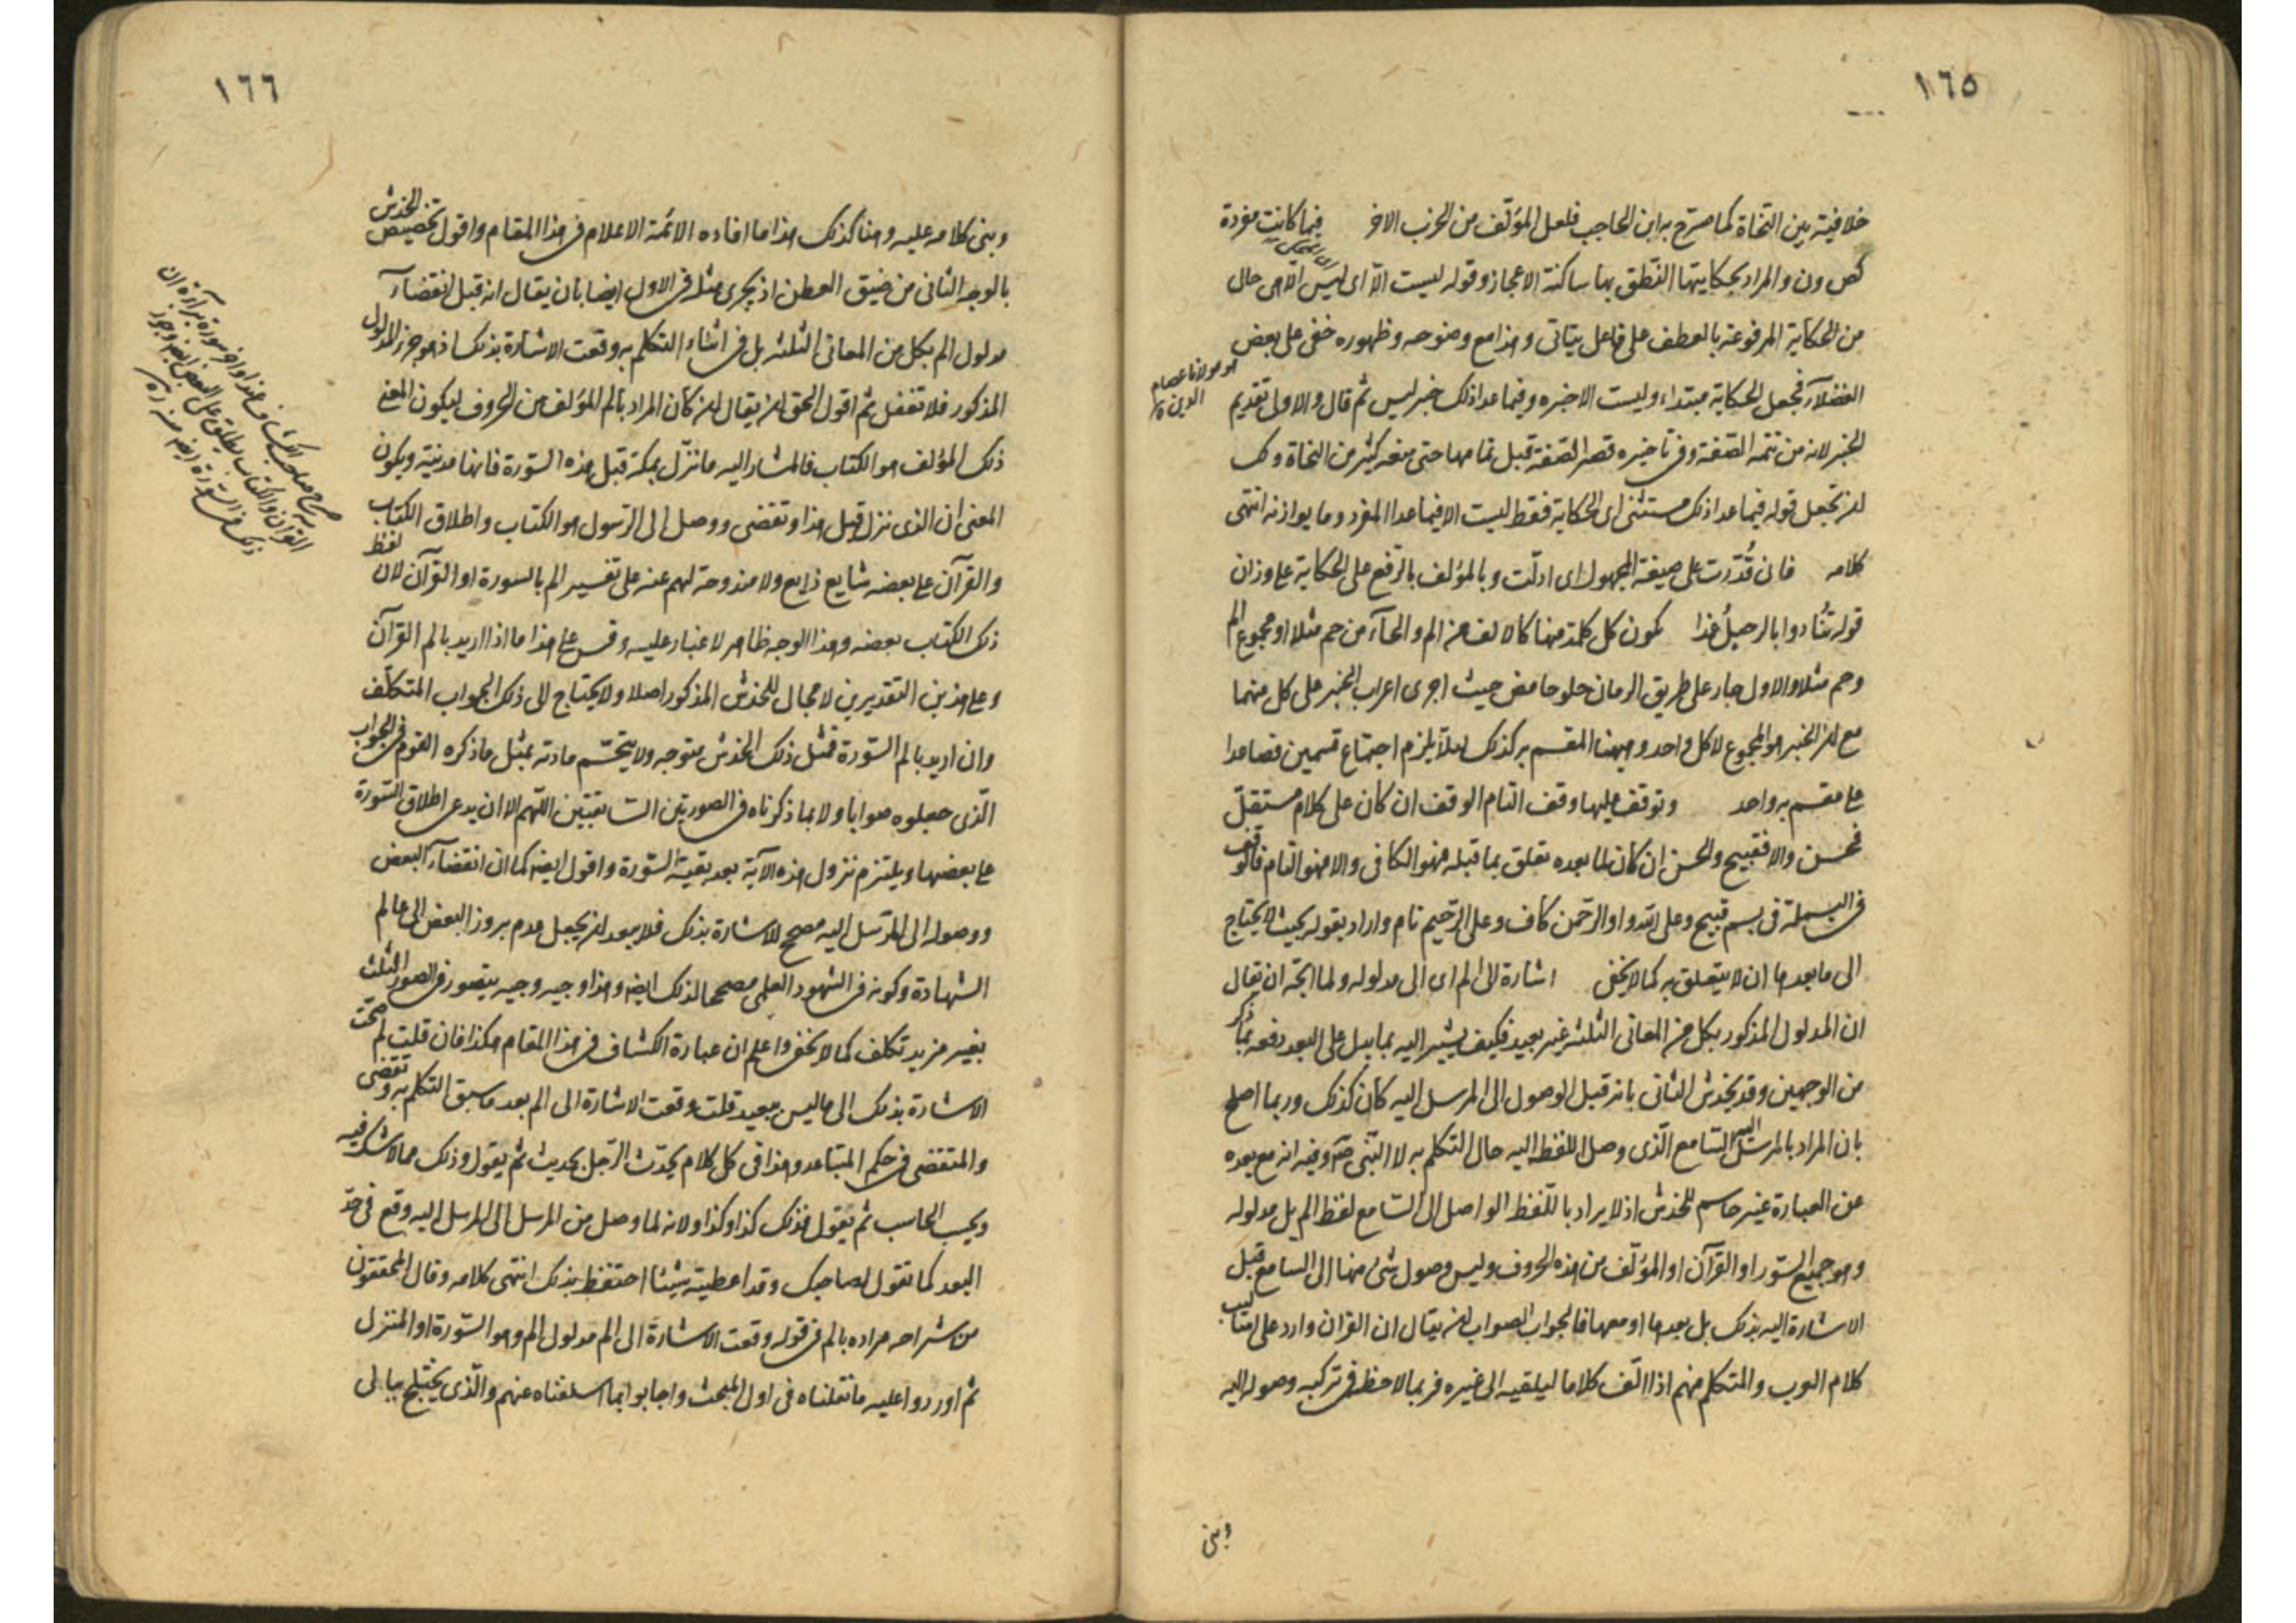 ١٦٥
خلافية بين النحاة كما صرح به ابن الحاجب فلعل المؤلف من الحزب الاخر فيما كانت مفردة
كص ون والمراد بحكايتها النطق بها ساكنة الاعجاز وقوله ليست الا اى ليس الا هى حال
من الحكاية المرفوعة بالعطف على فاعل يتاتى وهذا مع وضوحه وظهوره خفى على بعض
الفضلاء فجعل الحكاية مبتداء وليست الا خبره وفيما عدا ذلك خبر ليس ثم قال والاولى تقديم
هو مولانا عصام
الدين
الخبر لانه من تتمة الصفة وفى تاخيره قصر الصفة قبل تمامها حتى منعه كثير من النحاة ولك
ان تجعل قوله فيما عدا ذلك مستثنى اى الحكاية فقط ليست الا فيما عدا المفرد وما يوازنه انتهى
كلامه فان قُدّرت على صيغة المجهول اى ادلّت وبالمؤلف بالرفع على الحكاية على وزان
قوله تنادوا بالرحيلُ غدا لكون كل كلمة منها كالالف من الم والحاء من حم مثلا او مجموع الم
وحم مثلا والاول جار على طريق الرمان حلو حامض حيث اجرى اعراب الخبر على كل منهما
مع ان الخبر هو المجموع لا كل واحد وههنا المقسم به كذلك لئلا يلزم اجتماع قسمين فصاعدا
على مقسم به واحد وتوقف عليها وقف التام الوقف ان كان على كلام مستقل
فحسن والا فقبيح والحسن ان كان لما بعده تعلق بما قبله فهو الكافى والا فهو التام فالوقف
فى البسملة فى بسم قبيح وعلى الله او الرحمن كاف وعلى الرحيم تام واراد بقوله بحيث لا يحتاج
الى ما بعدها ان لا يتعلق به كما لا يخفى اشارة الى الم اى الى مدلوله ولما اتجه ان يقال
ان المدلول المذكور بكل من المعانى الثلثة غير بعيد فكيف يشير اليه بما يدل على البعد دفعه بما ذكر
من الوجهين وقد يخدش الثانى بانه قبل الوصول الى المرسل اليه كان كذلك وربما اصلح
بان المراد بالمرسل اليه السامع الذى وصل اللفظ اليه حال التكلم به لا النبى وفيه انه مع بعده
عن العبارة غير حاسم للخدش اذ لا يراد باللفظ الواصل الى السامع لفظ الم بل مدلوله
وهو جميع السور او القرآن او المؤلف من هذه الحروف وليس وصول شئ منها الى السامع قبل
الاشارة اليه بذلك بل بعدها او معها فالجواب الصواب ان يقال ان القران وارد على اساليب
كلام العرب والمتكلم منهم اذا الّف كلاما ليلقيه الى غيره فربما لاحظ فى تركبه وصوله اليه
وبنى
١٦٦
وبنى كلامه عليه وهنا كذلك هذا ما افاده الائمة الاعلام فى هذا المقام واقول تخصيص الخدش
بالوجه الثانى من ضيق العطن اذ يجرى مثله فى الاول ايضا بان يقال انه قبل انقضاء
مدلول الم بكل من المعانى الثلثة بل فى اثناء التكلم به وقعت الاشارة بذلك اذ هو جزء للمدلول
المذكور فلا تغفل ثم اقول الحق ان يقال ان كان المراد بالم المؤلف من الحروف ليكون المعنى
ذلك المؤلف هو الكتاب فالمشار اليه ما نزل بمكة قبل هذه السورة فانها مدنية ويكون
المعنى ان الذى نزل قبل هذا وتقضى ووصل الى الرسول هو الكتاب واطلاق الكتاب
والقرآن على بعضه شايع ذايع ولا مندوحة لهم عنه على تفسير الم بالسورة او القرآن لان لفظ
ذلك الكتاب بعضه وهذا الوجه ظاهر لا غبار عليه وقس على هذا ما اذا اريد بالم القرآن
وعلى هذين التقديرين لا مجال للخدش المذكور اصلا ولا يحتاج الى ذلك الجواب المتكلف
وان اريد بالم السورة فمثل ذلك الخدش متوجه ولا ينحسم مادته بمثل ما ذكره القوم فى الجواب
الذى جعلوه صوابا ولا بما ذكرناه فى الصورتين السابقتين اللهم الا ان يدعى اطلاق السورة
على بعضها ويلتزم نزول هذه الآية بعد بقية السورة واقول ايضا كما ان انقضاء البعض
ووصوله الى المرسل اليه مصحح للاشارة بذلك فلا يبعد ان يجعل عدم بروز البعض الى عالم
الشهادة وكونه فى الشهود العلمى مصححا لذلك ايضا وهذا وجيه وجيه يتصور فى الصور الثلث
بغير مزيد تكلف كما لا يخفى واعلم ان عبارة الكشاف فى هذا المقام هكذا فان قلت لم صحت
الاشارة بذلك الى ما ليس ببعيد قلت وقعت الاشارة الى الم بعد ما سبق التكلم به وتقضى
والمتقضى فى حكم المتباعد وهذا فى كل كلام يحدّث الرجل بحديث ثم يقول وذلك مما لا شك فيه
ويحسب الحاسب ثم يقول فذلك كذا وكذا ولانه لما وصل من المرسل الى المرسل اليه وقع فى حد
البعد كما تقول لصاحبك وقد اعطيته شيئا احتفظ بذلك انتهى كلامه وقال المحققون
من شراحه مراده بالم فى قوله وقعت الاشارة الى الم مدلول الم وهو السورة او المنزل
ثم اوردوا عليه ما نقلناه فى اول المبحث واجابوا بما اسلفناه عنهم والذى يختلج ببالى
صرح صاحب الكشاف عند اواخر سورة براءة ان
القرآن والكتاب يطلق على البعض